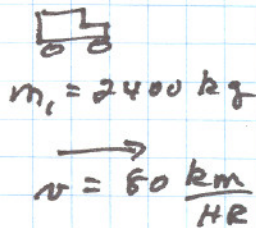 m₁ = 2400 kg
v = 80 km/HR